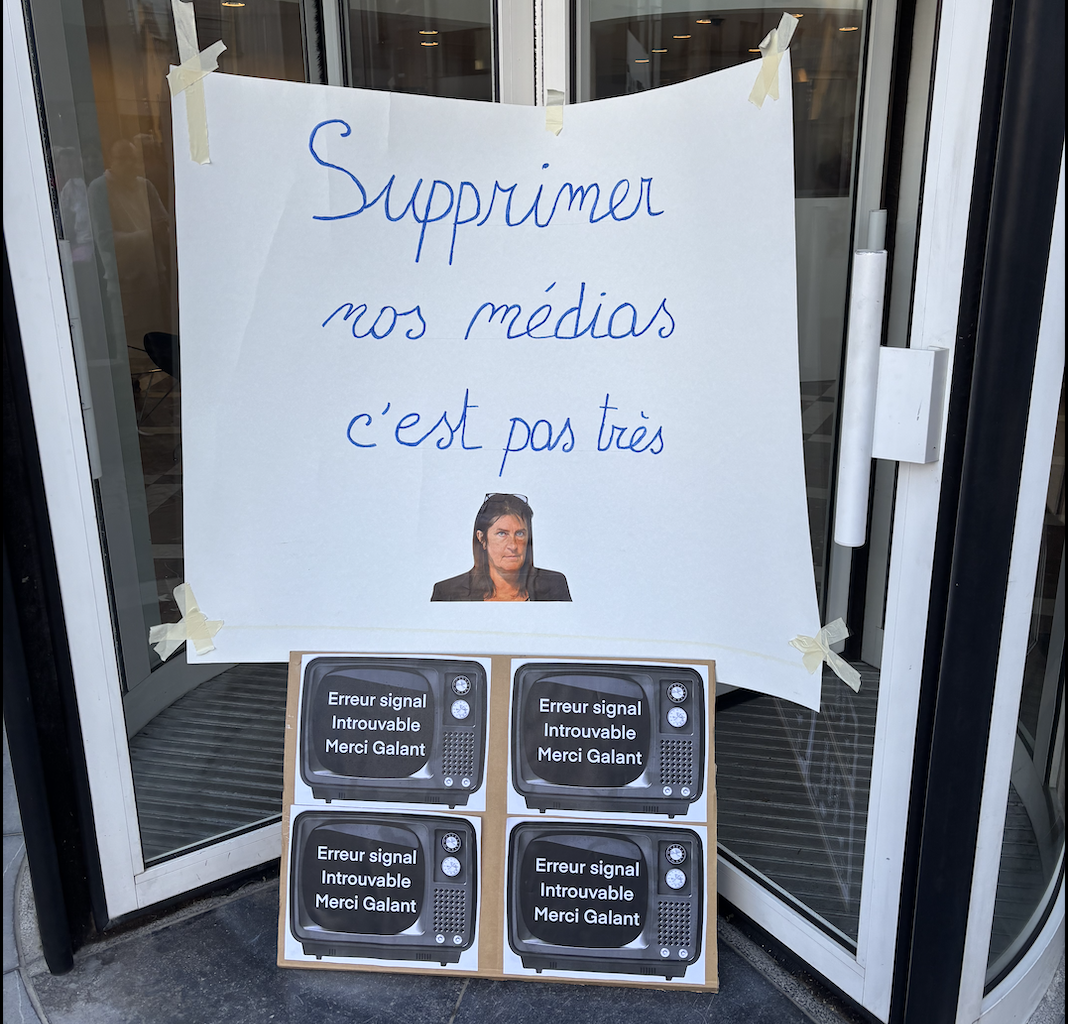 Supprimer
nos médias
c'est pas très
Erreur signal
Introuvable
Merci Galant
Erreur signal
Introuvable
Merci Galant
Erreur signal
Introuvable
Merci Galant
Erreur signal
Introuvable
Merci Galant